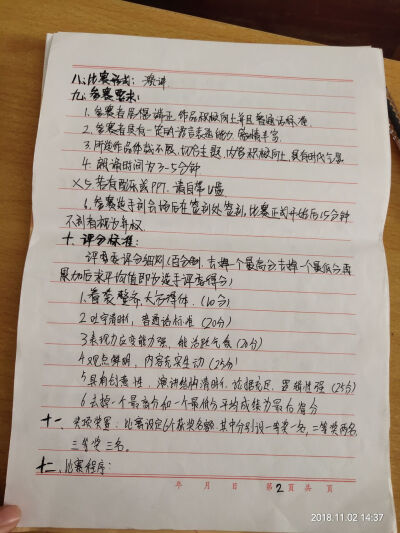 八、比赛形式：演讲
九、参赛要求：
1.参赛者层次端正,作品积极向上并且普通话标准
2.参赛者具有一定的语言表达能力,感情丰富
3.所选作品体裁不限,切合主题,内容积极向上,具有时代气息
4.朗诵时间为3-5分钟
×5.若有配乐或PPT,请自带U盘
6.参赛选手到会场后在签到处签到,比赛正式开始后15分钟
不到者视为弃权
十、评分标准：
评委表评分细则(百分制,去掉一个最高分去掉一个最低分再
累加后求平均值即为选手评委得分)
1.着装整齐大方得体.(10分)
2.吐字清晰,普通话标准(20分)
3.表现力应变能力强,能活跃气氛(20分)
4.观点鲜明,内容充实生动(25分)
5.具有创意性,演讲结构清晰,论据充足,逻辑性强(25分)
6.去掉一个最高分和一个最低分平均成绩为最后得分
十一、奖项设置：比赛设定6个获奖名额,其中分别设一等奖一名,二等奖两名,
三等奖三名。
十二、比赛程序：
年 月 日 第2页 共 页
2018.11.02 14:37